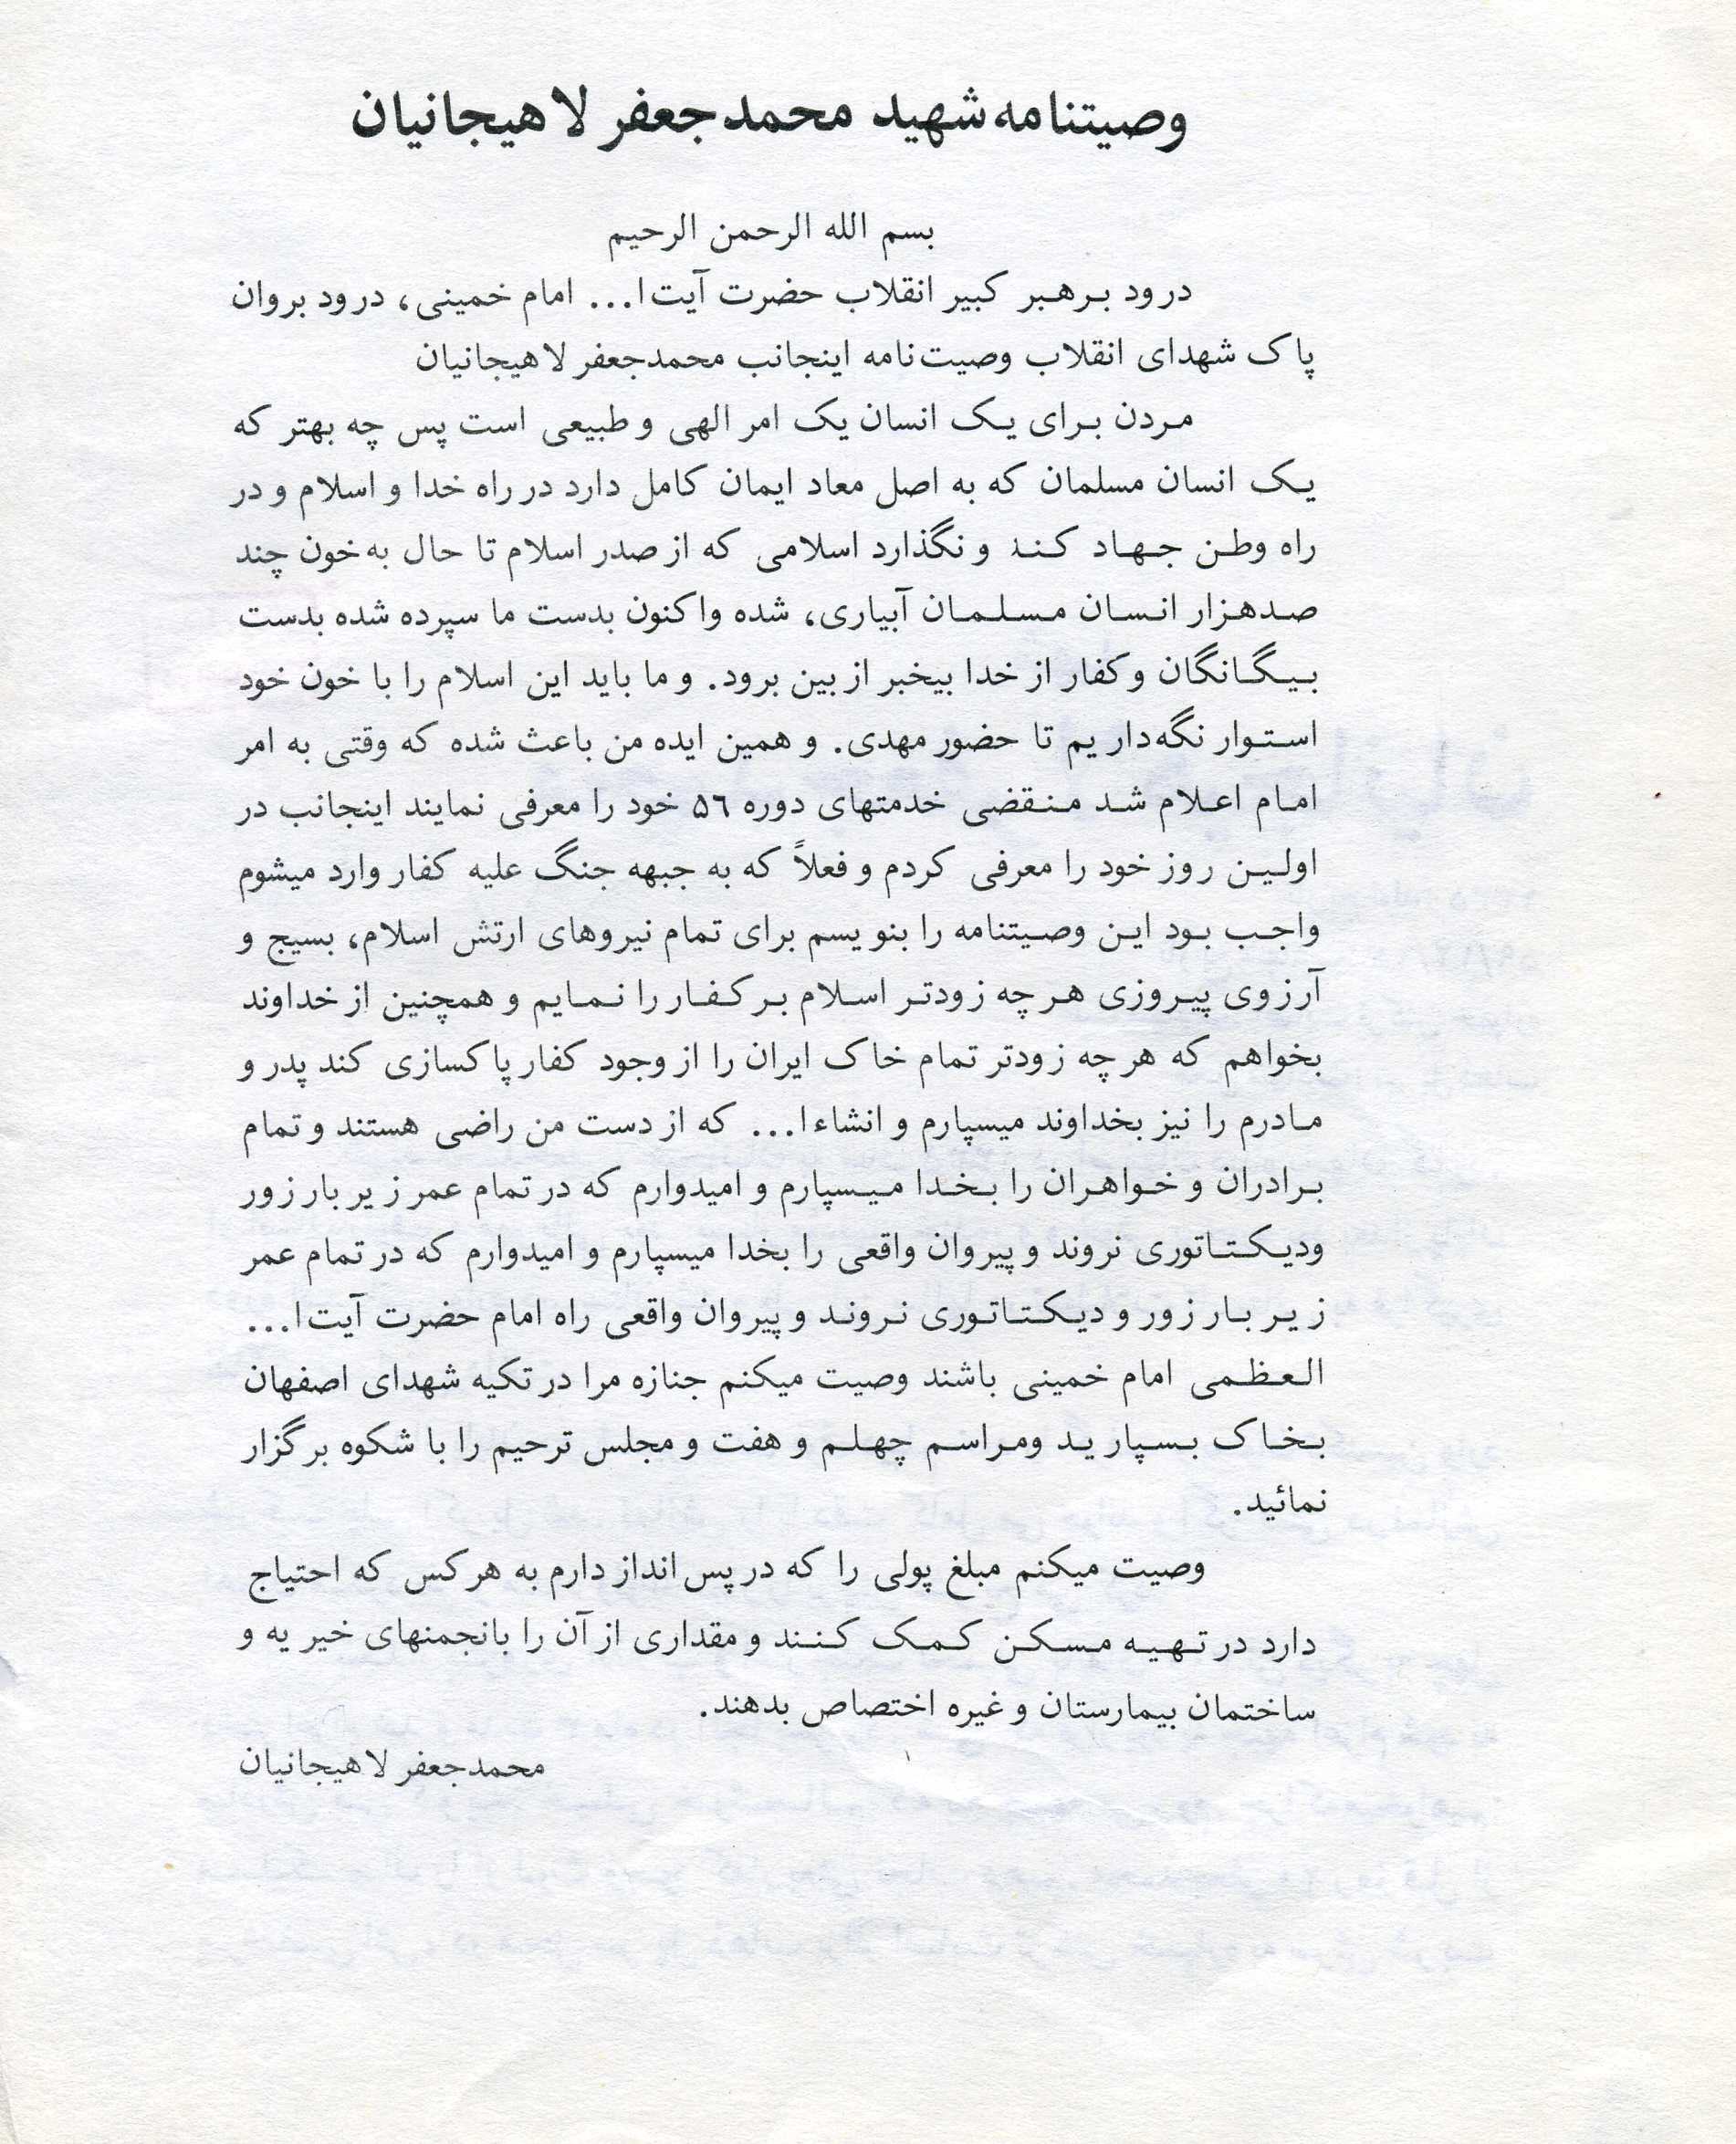 وصیتنامه شهید محمدجعفر لاهیجانیان
بسم الله الرحمن الرحیم
درود برهبر کبیر انقلاب حضرت آیت‌ا... امام خمینی، درود بروان
پاک شهدای انقلاب وصیت‌نامه اینجانب محمدجعفر لاهیجانیان
مردن برای یک انسان یک امر الهی و طبیعی است پس چه بهتر که
یک انسان مسلمان که به اصل معاد ایمان کامل دارد در راه خدا و اسلام و در
راه وطن جهاد کند و نگذارد اسلامی که از صدر اسلام تا حال به خون چند
صدهزار انسان مسلمان آبیاری، شده واکنون بدست ما سپرده شده بدست
بیگانگان و کفار از خدا بیخبر از بین برود. و ما باید این اسلام را با خون خود
استوار نگه‌داریم تا حضور مهدی. و همین ایده من باعث شده که وقتی به امر
امام اعلام شد منقضی خدمتهای دوره ۵۶ خود را معرفی نمایند اینجانب در
اولین روز خود را معرفی کردم و فعلاً که به جبهه جنگ علیه کفار وارد میشوم
واجب بود این وصیتنامه را بنویسم برای تمام نیروهای ارتش اسلام، بسیج و
آرزوی پیروزی هر چه زودتر اسلام بر کفار را نمایم و همچنین از خداوند
بخواهم که هر چه زودتر تمام خاک ایران را از وجود کفار پاکسازی کند پدر و
مادرم را نیز بخداوند میسپارم و انشاءا... که از دست من راضی هستند و تمام
برادران و خواهران را بخدا میسپارم و امیدوارم که در تمام عمر زیر بار زور
ودیکتاتوری نروند و پیروان واقعی را بخدا میسپارم و امیدوارم که در تمام عمر
زیر بار زور و دیکتاتوری نروند و پیروان واقعی راه امام حضرت آیت‌ا...
العظمی امام خمینی باشند وصیت میکنم جنازه مرا در تکیه شهدای اصفهان
بخاک بسپارید ومراسم چهلم و هفت و مجلس ترحیم را با شکوه برگزار
نمائید.
وصیت میکنم مبلغ پولی را که در پس‌انداز دارم به هر کس که احتیاج
دارد در تهیه مسکن کمک کنند و مقداری از آن را بانجمنهای خیریه و
ساختمان بیمارستان و غیره اختصاص بدهند.
محمدجعفر لاهیجانیان